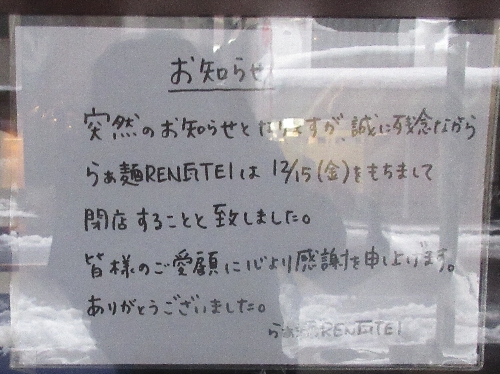 お知らせ
突然のお知らせとなりますが、誠に残念ながら
らぁ麺RENGTEIは12/15(金)をもちまして
閉店することと致しました。
皆様のご愛顧に心より感謝を申し上げます。
ありがとうございました。
らぁ麺RENGTEI